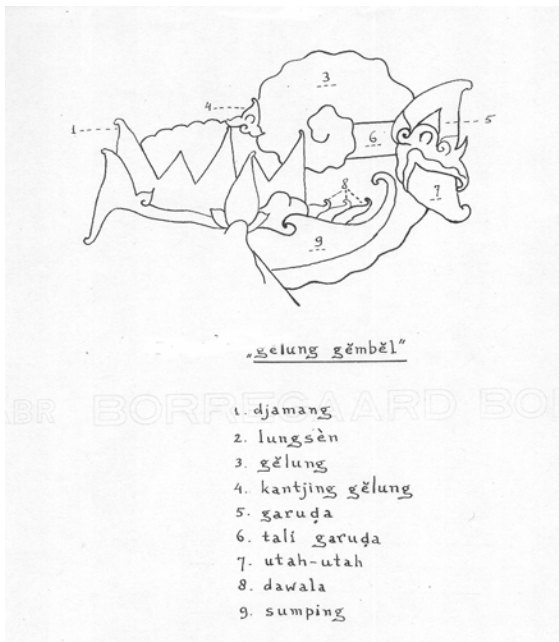 3
4
1
5
6
8
7
9
„gĕlung gĕmbĕl"
ABR BORREGAARD BO
1. djamang
2. lungsèn
3. gĕlung
4. kantjing gĕlung
5. garuḍa
6. tali garuḍa
7. utah-utah
8. dawala
9. sumping